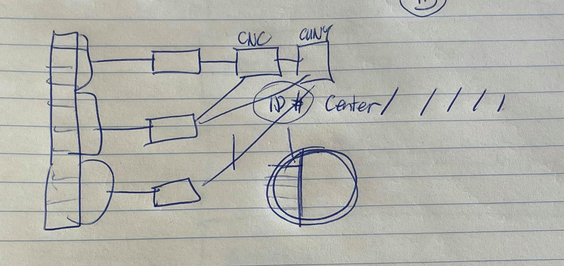 CNC CUNY
ID # Center/ / / / /